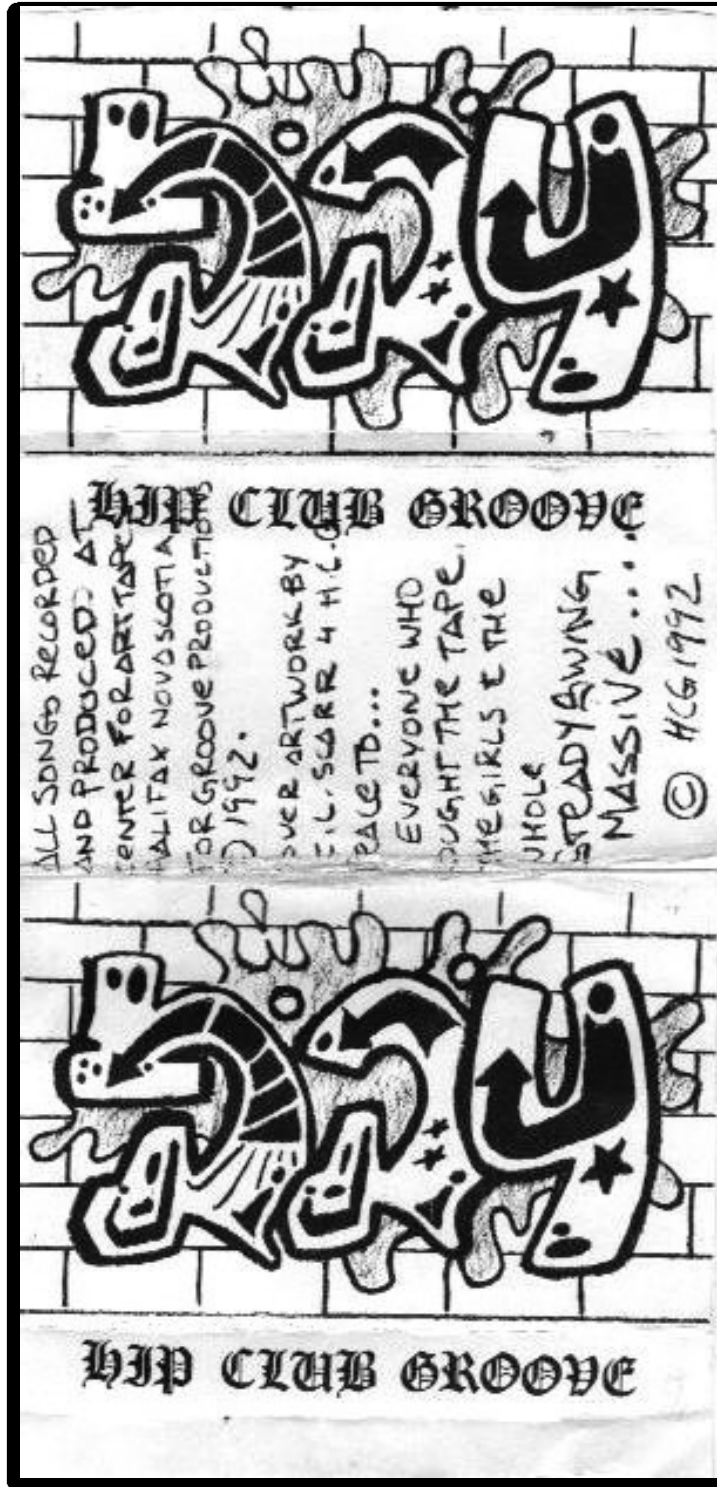 HIP CLUB GROOVE
ALL SONGS RECORDED
AND PRODUCED AT
CENTER FOR ART TAPES
ALIFAX NOVA SCOTIA
FOR GROOVE PRODUCTIONS
1992.
OVER ARTWORK BY
SCARR 4 H.C.G
EACE TO...
EVERYONE WHO
OUGHT THE TAPE.
THE GIRLS & THE
WHOLE
STEADY SWING
MASSIVE....
© HCG1992
HIP CLUB GROOVE